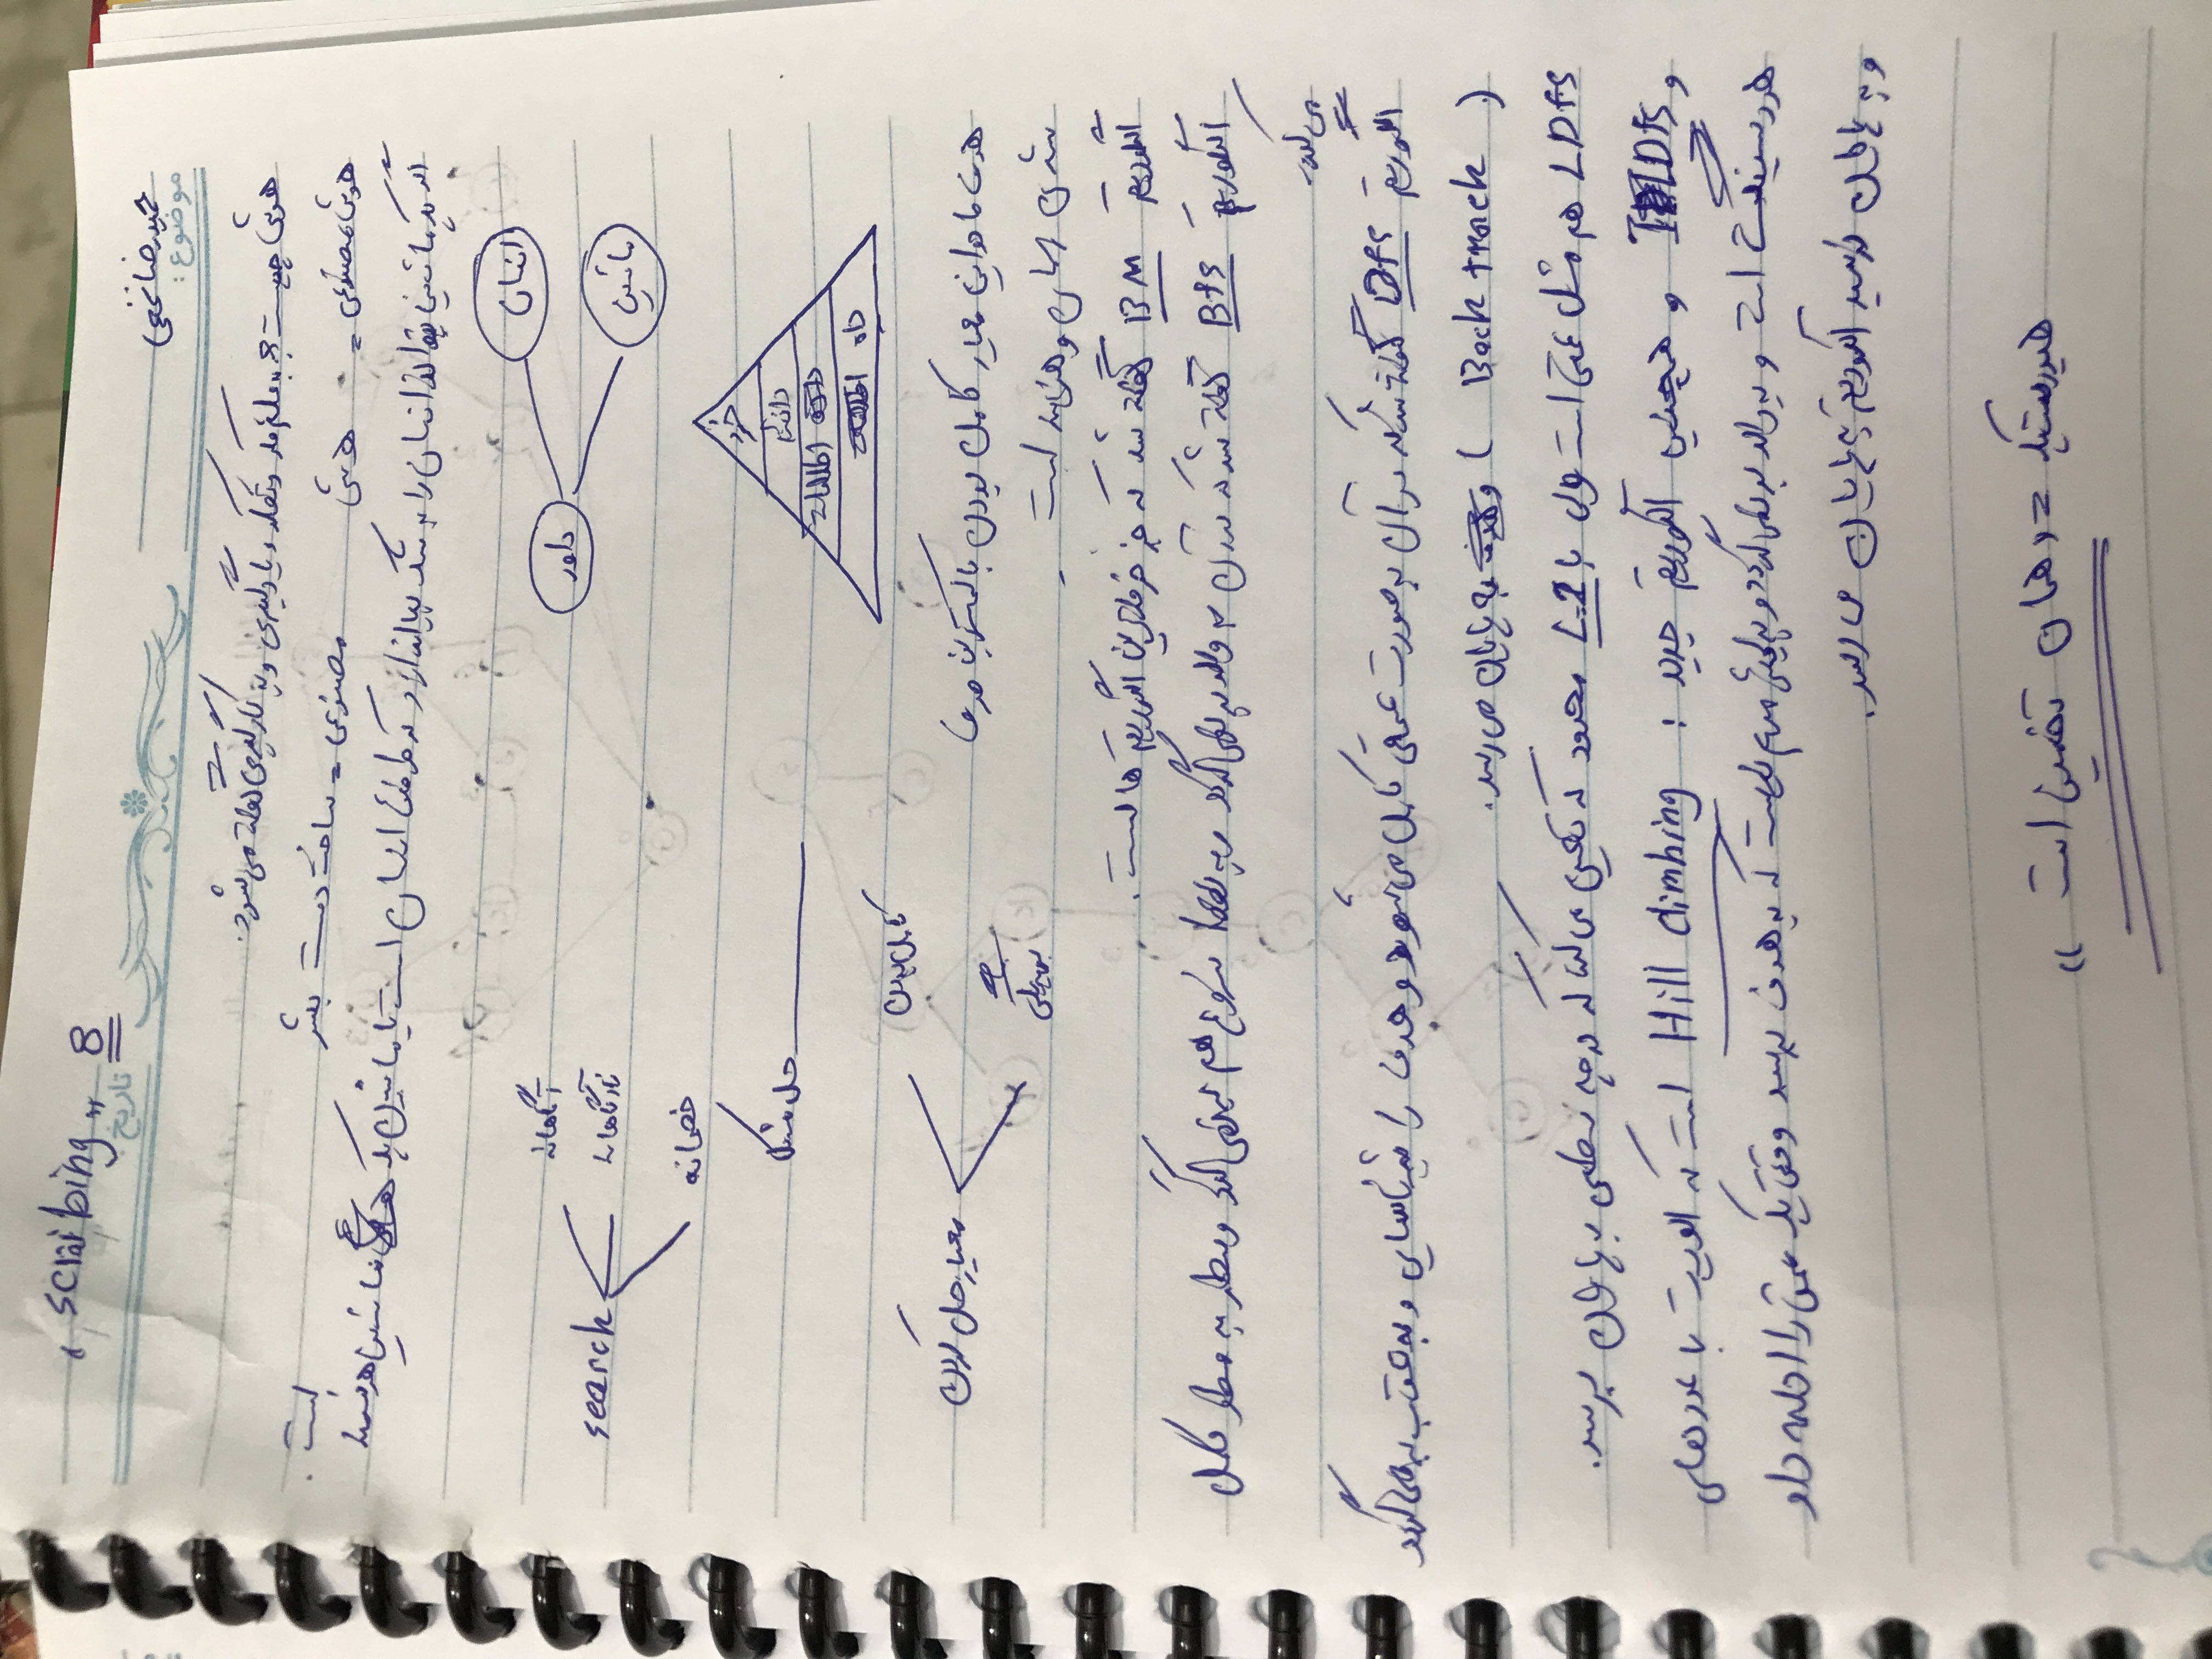 « scraibing » 8
تاریخ:
حمیدرضا نخعی
موضوع:
هوش چیست؟ به علم و تفکر و یادگیری و به کارگیری گفته می‌شود.
هوش مصنوعی = هوش مصنوعی = ساخت دست بشر
اگر یک ماشین بتواند انسان را به شک بیاندازد که طرفش انسان است یا ماشین یک ماشین هوشمند است.
انسان
داور
ماشین
search
آگاهانه
ناآگاهانه
خصمانه
خرد
دانش
اطلاعات
داده
حل مشکل
معیار حل کردن
کامل بودن
بهینگی
هدف ما در این معیار کامل بودن با کمترین صرف
شدن زمان و هزینه است.
الگوریتم BM گفته شد که جز خرفترین الگوریتم ها است.
الگوریتم BFS گفته شد که در آن به والد بر نمی‌گردد و به نقطه شروع هم بر نمی‌گردد و سطر به سطر کامل
می‌کند.
الگوریتم DFS گفته شد که در آن به صورت عمقی کامل می‌شود و هدف را شناسایی و به عقب بر می‌گردد
( Back track ) و به پایان می‌رسد.
LDFS هم مثل عمقی است ولی با L=2 محدود که تعیین می‌کند که در چه سطحی به پایان برسد.
و IDFS و همچنین الگوریتم جدید : Hill climbing است که اولویت با عددهای
هورستیک است و به والد بر نمی‌گردد و برایش مهم است که به هدف برسد وقتی یک عمق را ادامه داد
و به پایان رسید الگوریتم به پایان می‌رسد.
هیورستیک = « همان تخمین است »